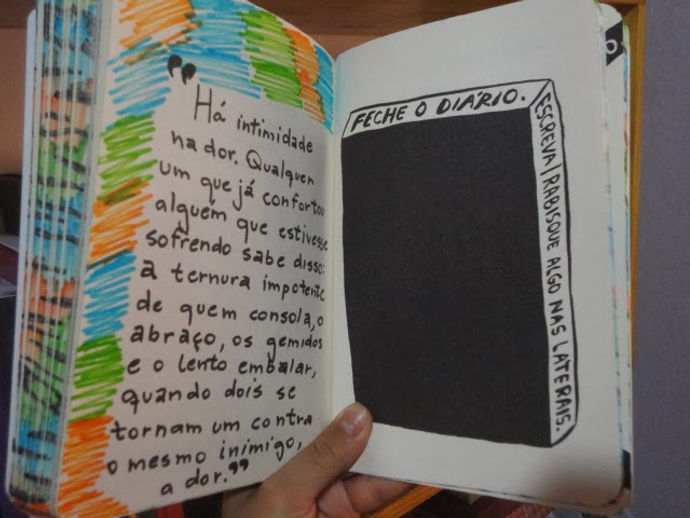 "Há intimidade
na dor. Qualquer
um que já confortou
alguem que estivesse
sofrendo sabe disso:
a ternura impotente
de quem consola, o
abraço, os gemidos
e o lento embalar,
quando dois se
tornam um contra
o mesmo inimigo,
a dor."
FECHE O DIÁRIO.
ESCREVA/RABISQUE ALGO NAS LATERAIS.